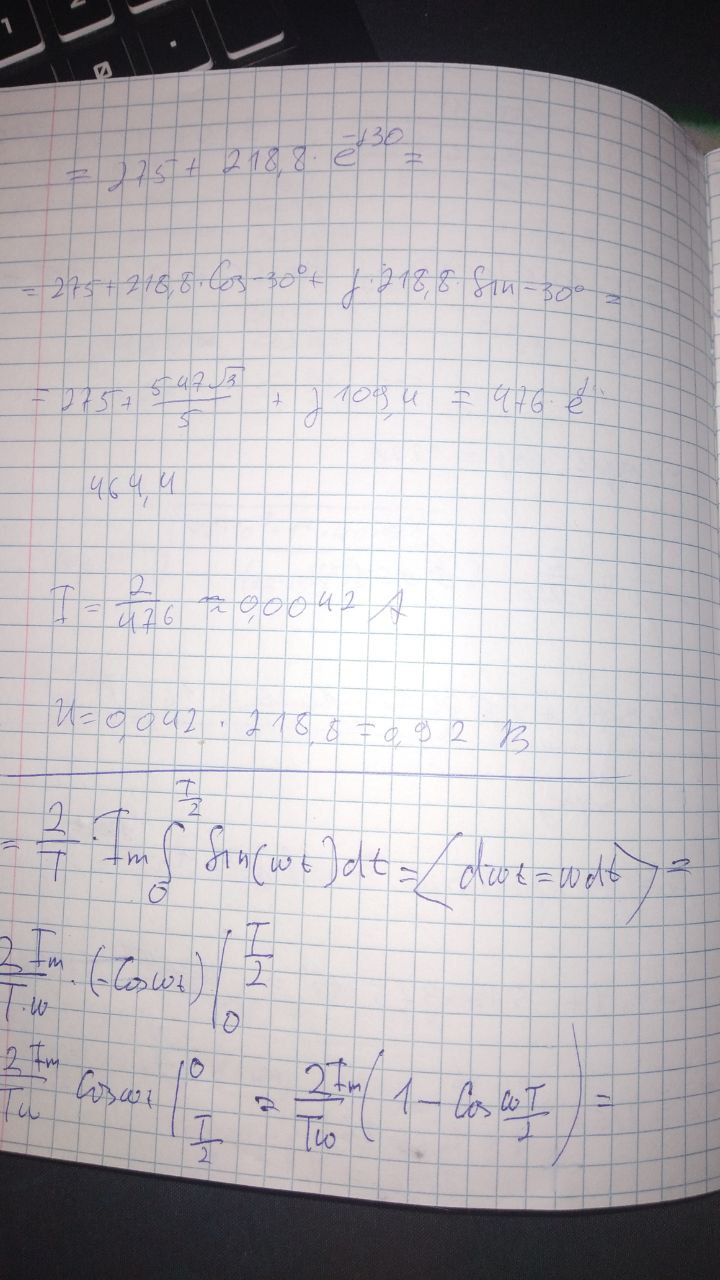 1 2
0 .
= 275 + 218,8 · e^{-j30} =
= 275 + 218,8 · Cos -30° + j · 218,8 · Sin -30° =
= 275 + \frac{547\sqrt{3}}{5} + j 109,4 = 476 · e^{j}
464,4
I = \frac{2}{476} ≈ 0,0042 A
U = 0,042 · 218,8 = 0,92 В
= \frac{2}{T} · I_m \int_0^{\frac{T}{2}} Sin(ωt)dt = ⟨dωt = ωdt⟩ =
\frac{2I_m}{T·ω} · (-Cosωt) |_0^{\frac{T}{2}}
\frac{2I_m}{Tω} Cosωt |_{\frac{T}{2}}^0 = \frac{2I_m}{Tω} (1 - Cos ω\frac{T}{2}) =